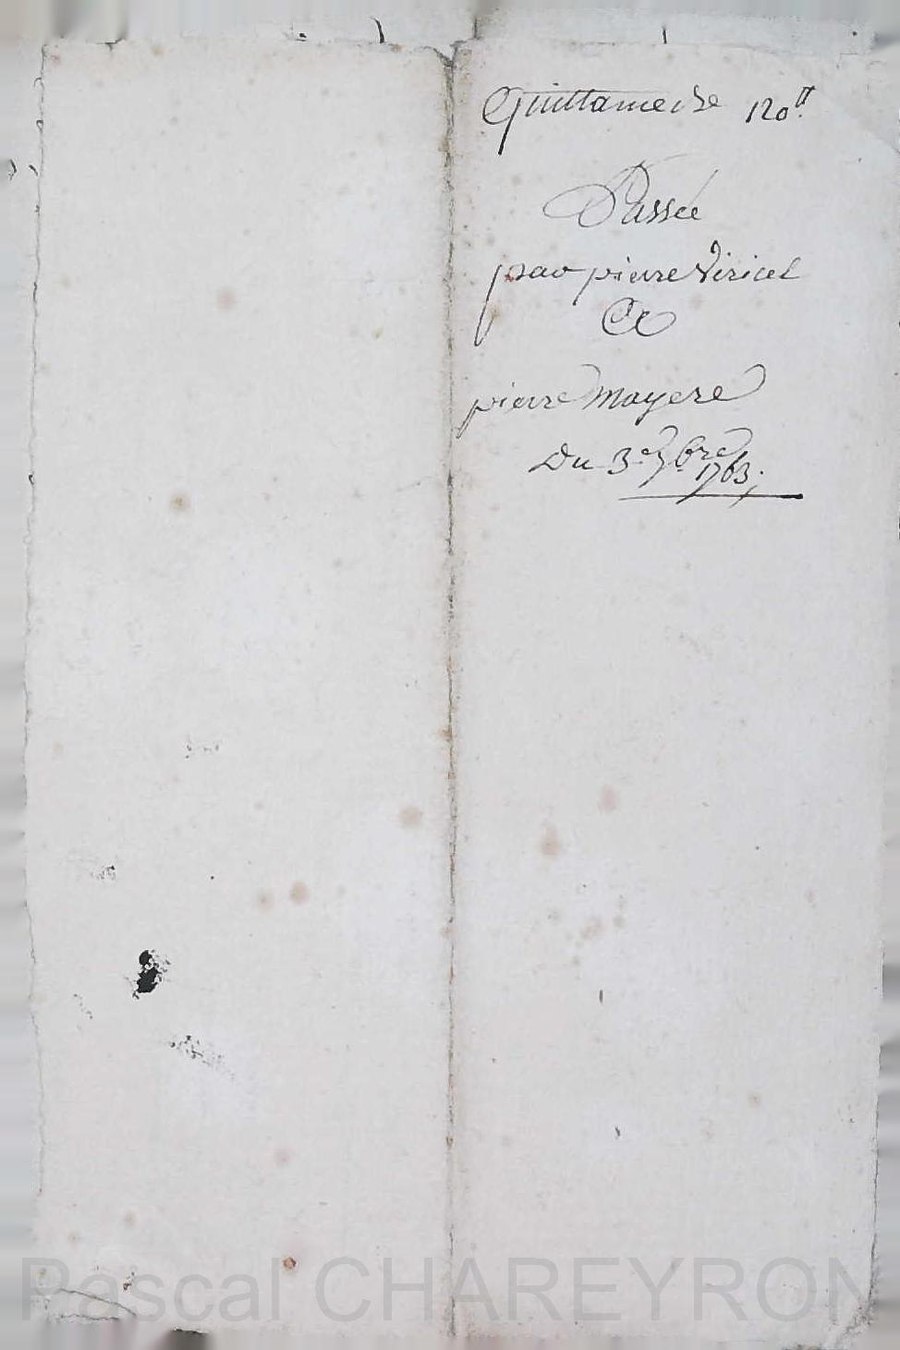 Quittance de 120ᵗᵗ
Passée
par pierre Viricel
A
pierre mayere
Du 3e 7bre 1763.
Pascal CHAREYRON